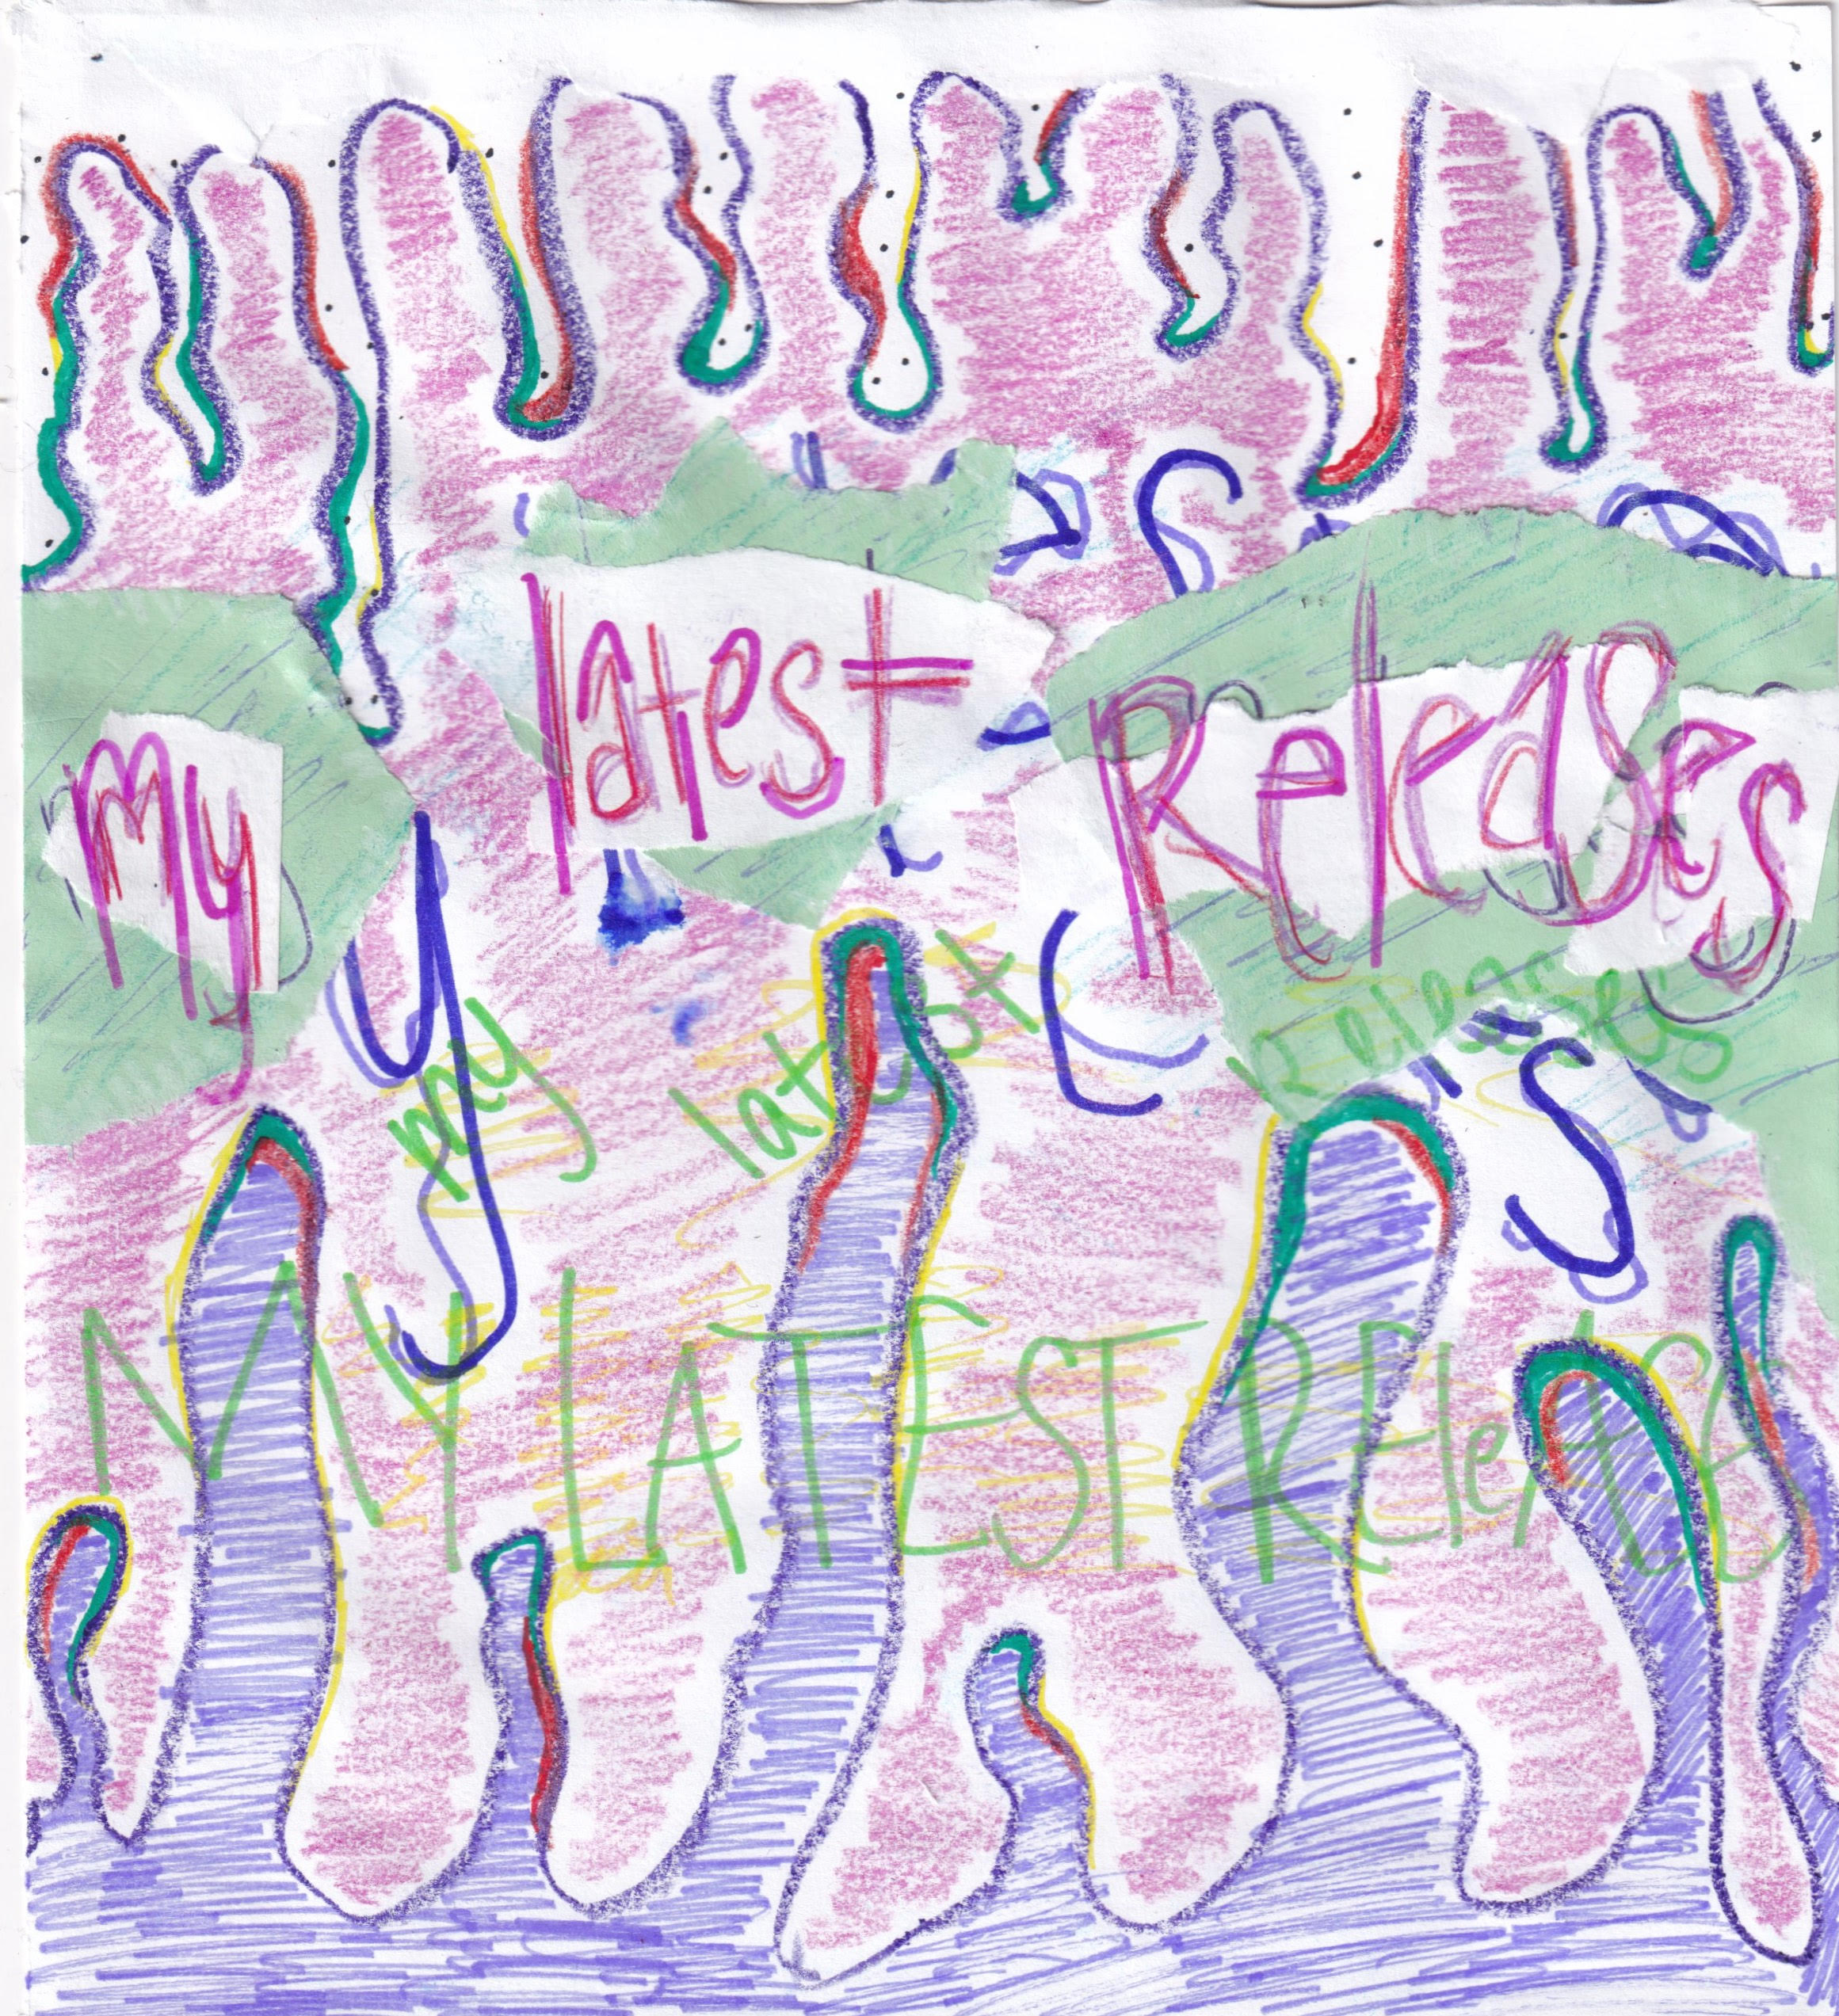 My latest Releases
my latest Releases
MY LATEST REleASe